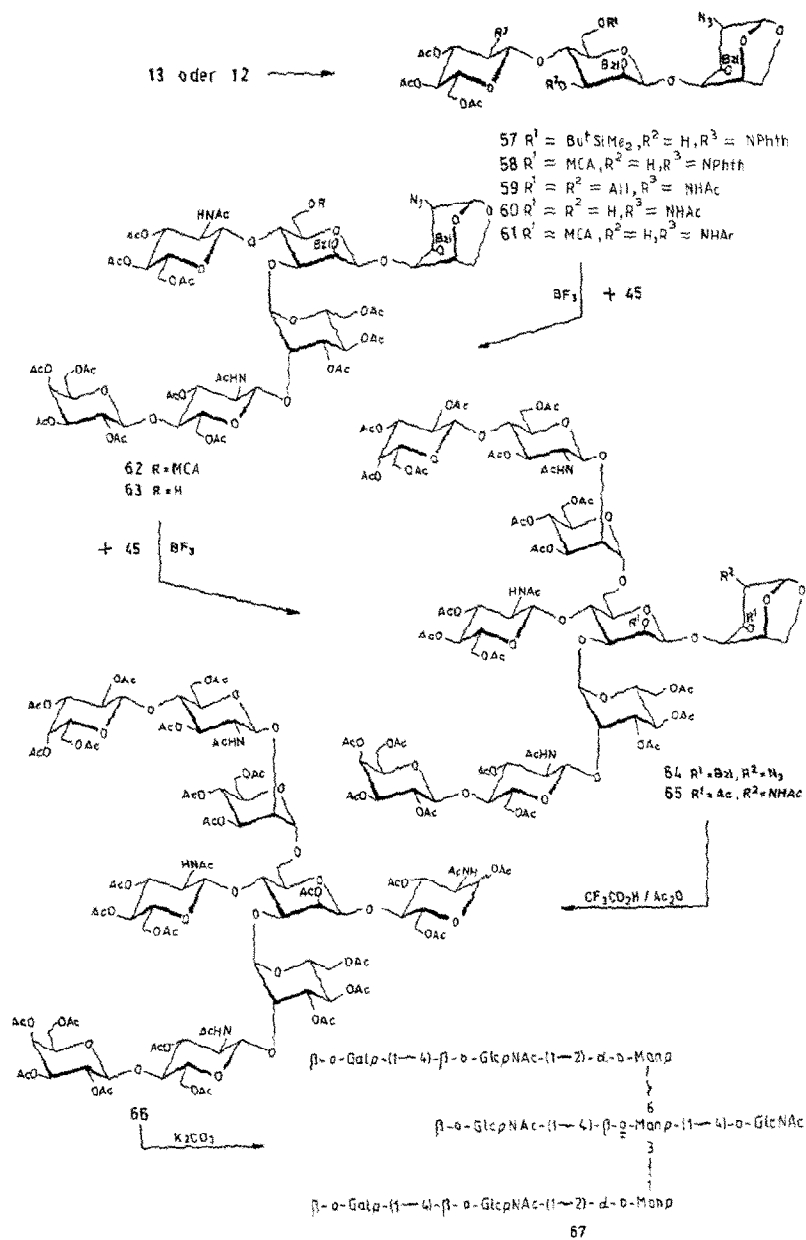 13 oder 12
AcO
R³
O
OR¹
BzlO
N₃
BzlO
AcO
OAc
R²O
57 R¹ = BuᵗSiMe₂, R² = H, R³ = NPhth
58 R¹ = MCA, R² = H, R³ = NPhth
59 R¹ = R² = All, R³ = NHAc
60 R¹ = R² = H, R³ = NHAc
61 R¹ = MCA, R² = H, R³ = NHAc
BF₃ + 45
HNAc
OR
N₃
AcO
AcO
OAc
BzlO
BzlO
OAc
OAc
OAc
AcO
OAc
AcHN
AcO
AcO
OAc
OAc
62 R = MCA
63 R = H
+ 45 BF₃
OAc
OAc
AcO
AcO
OAc
AcO
AcHN
OAc
AcO
AcO
R²
HNAc
AcO
AcO
OAc
R¹O
R¹O
OAc
OAc
OAc
AcO
OAc
AcHN
AcO
AcO
OAc
OAc
64 R¹ = Bzl, R² = N₃
65 R¹ = Ac, R² = NHAc
CF₃CO₂H / Ac₂O
OAc
OAc
AcO
AcO
OAc
AcO
AcHN
OAc
AcO
AcO
HNAc
AcO
AcO
OAc
AcO
AcNH
OAc
AcO
OAc
OAc
OAc
OAc
AcO
OAc
AcHN
AcO
AcO
OAc
OAc
66
K₂CO₃
β-D-Galp-(1—4)-β-D-GlcpNAc-(1—2)-α-D-Manp
1
6
β-D-GlcpNAc-(1—4)-β-D-Manp-(1—4)-D-GlcNAc
3
1
β-D-Galp-(1—4)-β-D-GlcpNAc-(1—2)-α-D-Manp
67